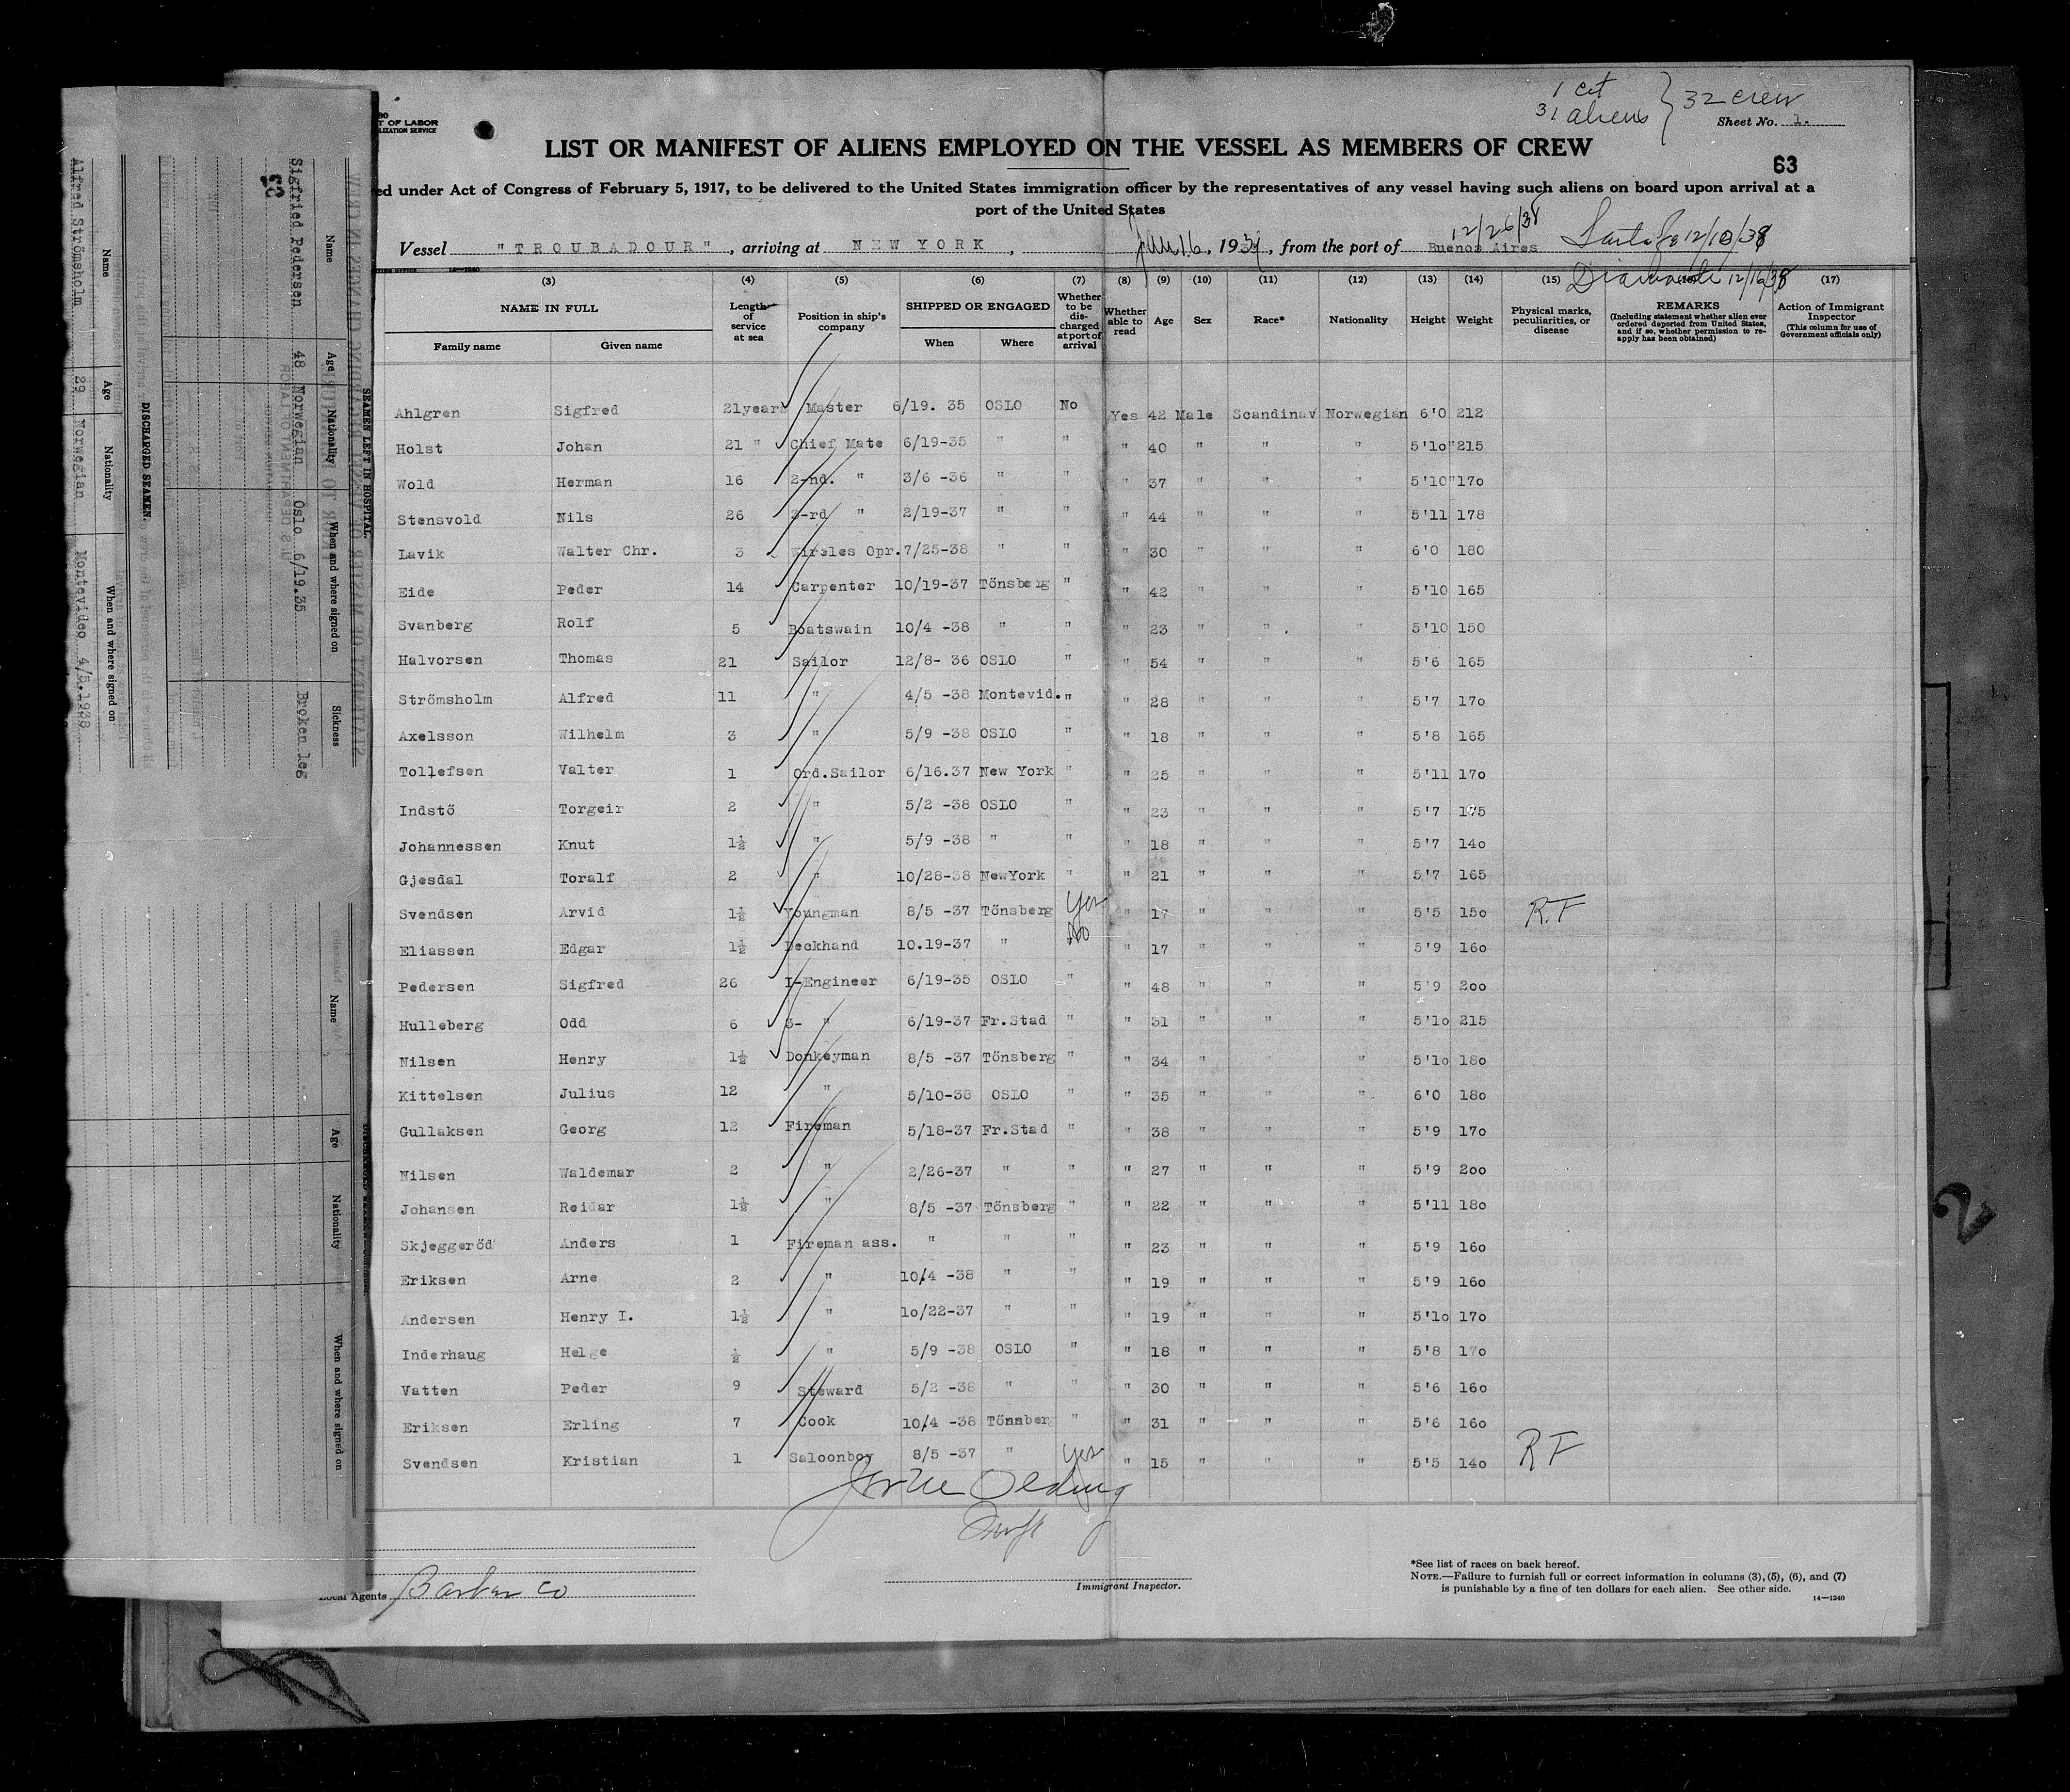 1 cit
31 aliens } 32 crew
Sheet No. 1.
80
T OF LABOR
LIZATION SERVICE
LIST OR MANIFEST OF ALIENS EMPLOYED ON THE VESSEL AS MEMBERS OF CREW
63
ed under Act of Congress of February 5, 1917, to be delivered to the United States immigration officer by the representatives of any vessel having such aliens on board upon arrival at a
port of the United States
12/26/38
Vessel "TROUBADOUR", arriving at NEW YORK, Jan 16, 1939, from the port of Buenos Aires Santa Fe 12/10/38
Diamante 12/16/38
14—1240
(3) (4) (5) (6) (7) (8) (9) (10) (11) (12) (13) (14) (15) (17)
NAME IN FULL Length of service at sea Position in ship's company SHIPPED OR ENGAGED Whether to be discharged at port of arrival Whether able to read Age Sex Race* Nationality Height Weight Physical marks, peculiarities, or disease REMARKS (Including statement whether alien ever ordered deported from United States, and if so, whether permission to reapply has been obtained) Action of Immigrant Inspector (This column for use of Government officials only)
Family name Given name When Where
Ahlgren Sigfred 21years Master 6/19. 35 OSLO No Yes 42 Male Scandinav Norwegian 6'0 212
Holst Johan 21 " Chief Mate 6/19-35 " " " 40 " " " 5'10" 215
Wold Herman 16 2-nd. " 3/6 -36 " " " 37 " " " 5'10" 170
Stensvold Nils 26 3-rd " 2/19-37 " " " 44 " " " 5'11 178
Lavik Walter Chr. 3 Wirsles Opr. 7/25-38 " " " 30 " " " 6'0 180
Eide Peder 14 Carpenter 10/19-37 Tönsberg " " 42 " " " 5'10 165
Svanberg Rolf 5 Boatswain 10/4 -38 " " " 23 " " " 5'10 150
Halvorsen Thomas 21 Sailor 12/8- 36 OSLO " " 54 " " " 5'6 165
Strömsholm Alfred 11 " 4/5 -38 Montevid. " " 28 " " " 5'7 170
Axelsson Wilhelm 3 " 5/9 -38 OSLO " " 18 " " " 5'8 165
Tollefsen Valter 1 Ord.Sailor 6/16.37 New York " " 25 " " " 5'11 170
Indstö Torgeir 2 " 5/2 -38 OSLO " " 23 " " " 5'7 175
Johannessen Knut 1½ " 5/9 -38 " " " 18 " " " 5'7 140
Gjesdal Toralf 2 " 10/28-38 NewYork " " 21 " " " 5'7 165
Svendsen Arvid 1½ Youngman 8/5 -37 Tönsberg Yes " 17 " " " 5'5 150 R.F
Eliassen Edgar 1½ Deckhand 10.19-37 " No " 17 " " " 5'9 160
Pedersen Sigfred 26 I-Engineer 6/19-35 OSLO " " 48 " " " 5'9 200
Hulleberg Odd 6 3- " 6/19-37 Fr.Stad " " 31 " " " 5'10 215
Nilsen Henry 1½ Donkeyman 8/5 -37 Tönsberg " " 34 " " " 5'10 180
Kittelsen Julius 12 " 5/10-38 OSLO " " 35 " " " 6'0 180
Gullaksen Georg 12 Fireman 5/18-37 Fr.Stad " " 38 " " " 5'9 170
Nilsen Waldemar 2 " 2/26-37 " " " 27 " " " 5'9 200
Johansen Reidar 1½ " 8/5 -37 Tönsberg " " 22 " " " 5'11 180
Skjeggeröd Anders 1 Fireman ass. " " " " 23 " " " 5'9 160
Eriksen Arne 2 " 10/4 -38 " " " 19 " " " 5'9 160
Andersen Henry I. 1½ " 10/22-37 " " " 19 " " " 5'10 170
Inderhaug Helge ½ " 5/9 -38 OSLO " " 18 " " " 5'8 170
Vatten Peder 9 Steward 5/2 -38 " " " 30 " " " 5'6 160
Eriksen Erling 7 Cook 10/4 -38 Tönsber " " 31 " " " 5'6 160
Svendsen Kristian 1 Saloonboy 8/5 -37 " Yes " 15 " " " 5'5 140 R F
Local Agents Barber Co
Immigrant Inspector.
*See list of races on back hereof.
NOTE.—Failure to furnish full or correct information in columns (3), (5), (6), and (7)
is punishable by a fine of ten dollars for each alien. See other side.
14—1240
2
SEAMEN LEFT IN HOSPITAL.
Name Age Nationality When and where signed on Sickness
Sigfried Pedersen 48 Norwegian Oslo 6/19.35 Broken leg
63
DISCHARGED SEAMEN.
Name Age Nationality When and where signed on
Alfred Strömsholm 29 Norwegian Montevideo 4/5.1938
Name Age Nationality When and where signed on